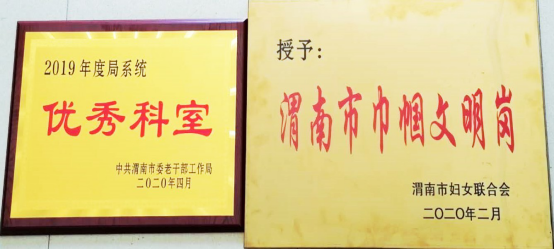 2019年度局系统
优秀科室
中共渭南市委老干部工作局
二〇二〇年四月
授予：
渭南市巾帼文明岗
渭南市妇女联合会
二〇二〇年二月